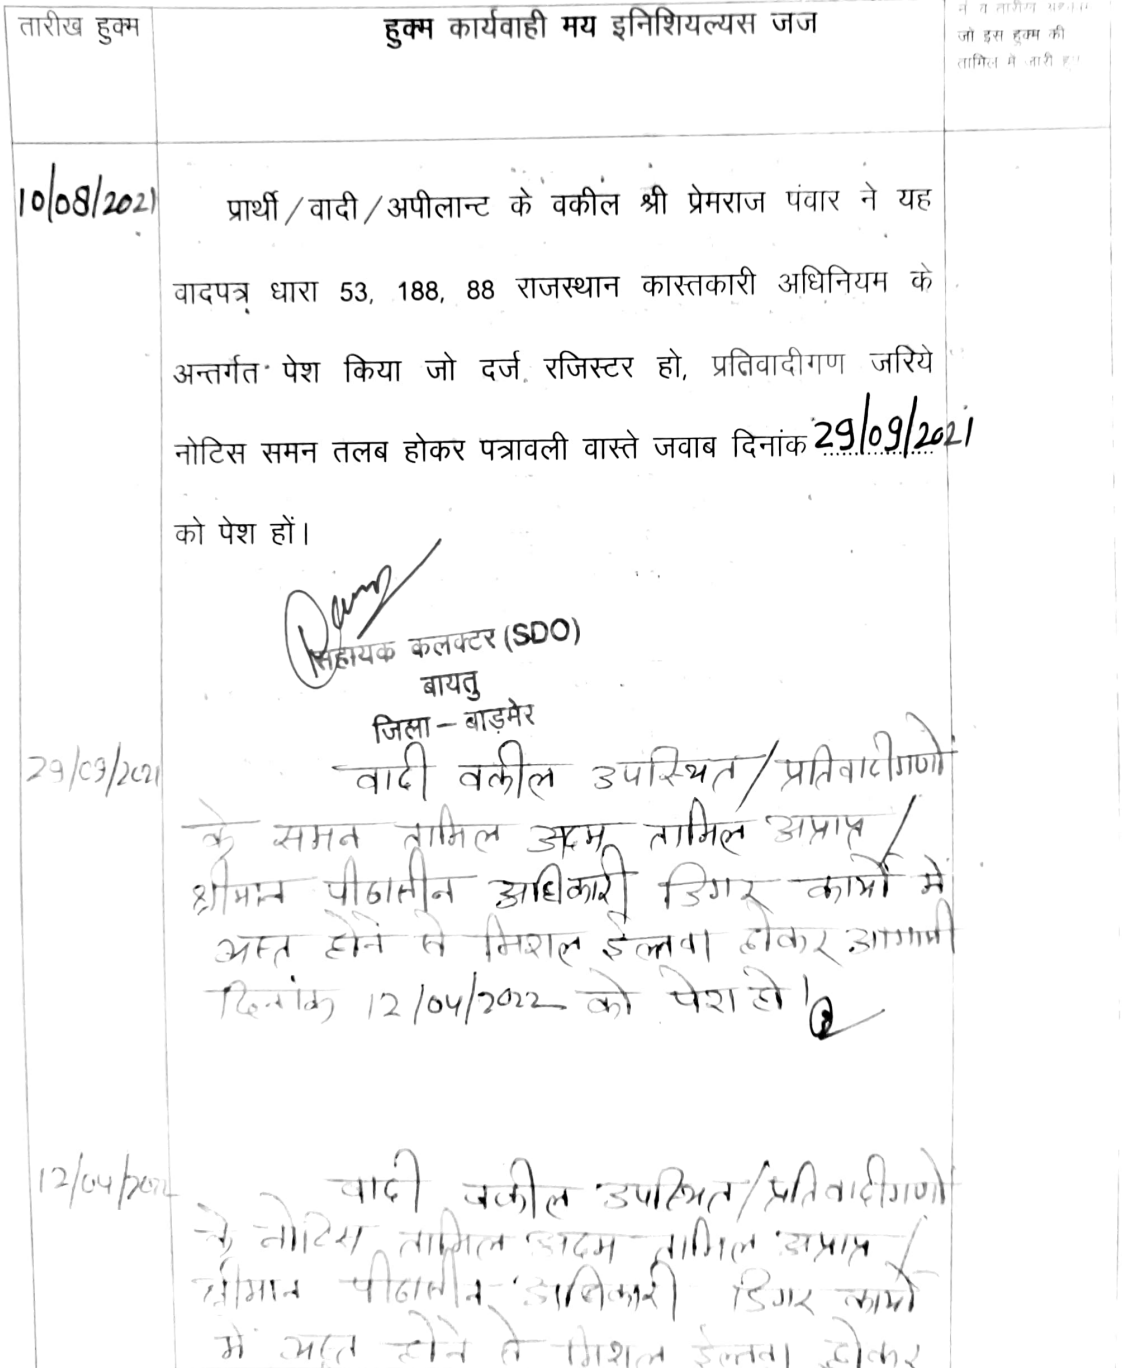 तारीख हुक्म
हुक्म कार्यवाही मय इनिशियल्यस जज
जो इस हुक्म की
तामिल में जारी
10/08/2021
प्रार्थी/वादी/अपीलान्ट के वकील श्री प्रेमराज पंवार ने यह
वादपत्र धारा 53, 188, 88 राजस्थान कास्तकारी अधिनियम के
अन्तर्गत पेश किया जो दर्ज रजिस्टर हो, प्रतिवादीगण जरिये
नोटिस समन तलब होकर पत्रावली वास्ते जवाब दिनांक 29/09/2021
को पेश हों।
सहायक कलक्टर (SDO)
बायतु
जिला – बाड़मेर
29/09/2021
वादी वकील उपस्थित/प्रतिवादीगणों
के समन तामिल अदम तामिल अप्राप्त/
श्रीमान पीठासीन अधिकारी डिगर कार्यो में
व्यस्त होने से मिशल ईल्तवा होकर आगामी
दिनांक 12/04/2022 को पेश हो।
12/04/2022
वादी वकील उपस्थित/प्रतिवादीगणों
के नोटिस तामिल अदम तामिल अप्राप्त/
श्रीमान पीठासीन अधिकारी डिगर कार्यो
में व्यस्त होने से मिशल ईल्तवा होकर